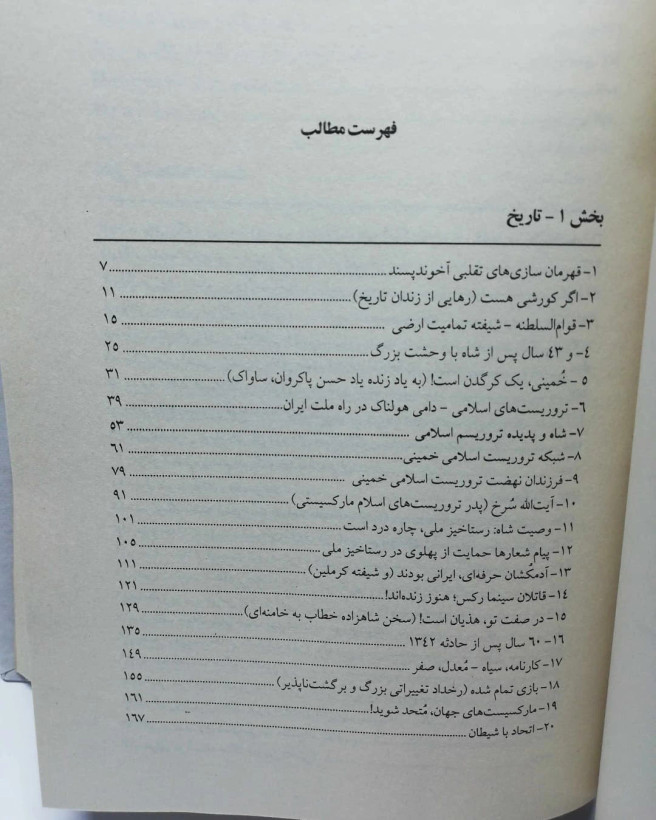 فهرست مطالب
بخش ۱ - تاریخ
۱- قهرمان سازی‌های تقلبی آخوندپسند ۷
۲- اگر کورشی هست (رهایی از زندان تاریخ) ۱۱
۳- قوام‌السلطنه - شیفته تمامیت ارضی ۱۵
۴- و ۴۳ سال پس از شاه با وحشت بزرگ ۲۵
۵ - خُمینی، یک کرگدن است! (به یاد زنده یاد حسن پاکروان، ساواک) ۳۱
۶- تروریست‌های اسلامی - دامی هولناک در راه ملت ایران ۳۹
۷- شاه و پدیده تروریسم اسلامی ۵۳
۸- شبکه تروریست اسلامی خمینی ۶۱
۹- فرزندان نهضت تروریست اسلامی خمینی ۷۹
۱۰- آیت‌الله سُرخ (پدر تروریست‌های اسلام مارکسیستی) ۹۱
۱۱- وصیت شاه: رستاخیز ملی، چاره درد است ۱۰۱
۱۲- پیام شعارها حمایت از پهلوی در رستاخیز ملی ۱۰۵
۱۳- آدمکُشان حرفه‌ای، ایرانی بودند (و شیفته کرملین) ۱۱۱
۱۴- قاتلان سینما رکس؛ هنوز زنده‌اند! ۱۲۱
۱۵- در صفت تو، هذیان است! (سخن شاهزاده خطاب به خامنه‌ای) ۱۲۹
۱۶- ۶۰ سال پس از حادثه ۱۳۴۲ ۱۳۵
۱۷- کارنامه، سیاه - مُعدل، صفر ۱۴۹
۱۸- بازی تمام شده (رخداد تغییراتی بزرگ و برگشت‌ناپذیر) ۱۵۵
۱۹- مارکسیست‌های جهان، مُتحد شوید! ۱۶۱
۲۰- اتحاد با شیطان ۱۶۷